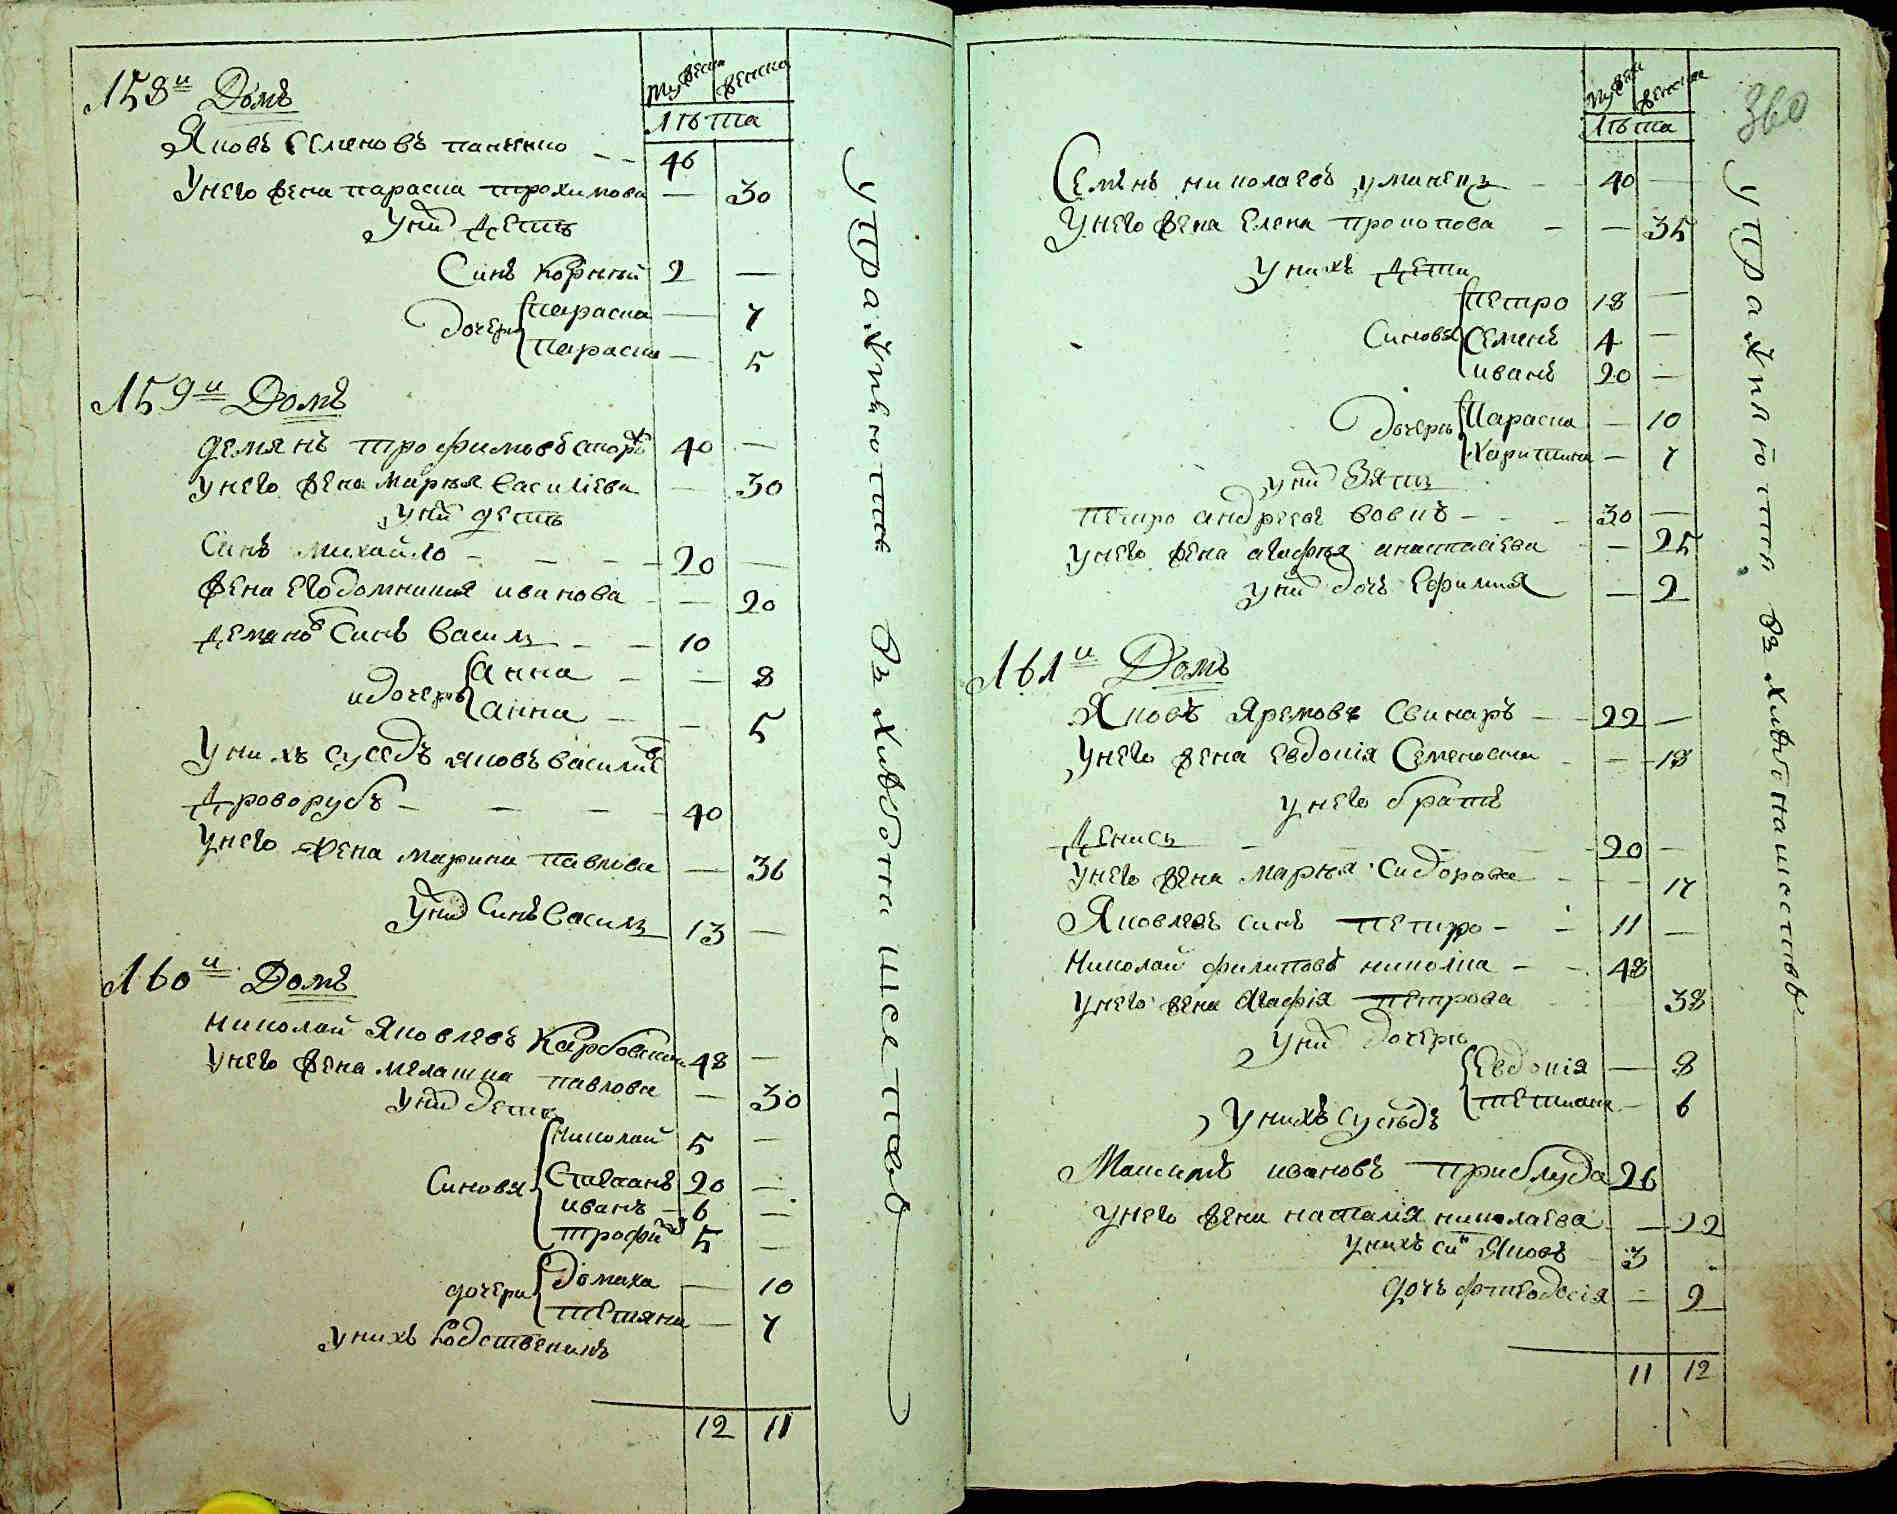 мужеска женска
лѣта
158и Домъ
Яковъ Семеновъ паненко — — 46
Унего жена параска трохимова — 30
Уних дети
Синъ Корнѣй 2 —
дочери параска — 7
параска — 5
159и Домъ
демянъ трофимовъ 40 —
унего жена марья василіева — 30
Уних дети
Синъ михайло — — — — 20 —
жена его домникия иванова — — 20
демяновъ Синъ василъ — — 10
идочери анна — — 8
анна — — 5
Унихъ суседъ яковъ василіевъ
дроворубъ — — — — 40
Унего жена марина павлова — 36
Уних Синъ василъ 13 —
160и Домъ
николай яковлевъ Карбовски 48 —
унего жена мелашка павлова — 30
Уних дети
николай 5 —
Синовя Степанъ 20 —
иванъ — 6 —
трофим 5 —
дочери домаха — 10
тетяна — 7
унихъ родственикъ
12 11
Утракпѣютпв
въ Хижбонашествѣ
360
мужеска женска
лѣта
Семенъ николаевъ уманецъ — — 40 —
Унего жена Елена прокопова — — 35
Унихъ дети
петро 18 —
Синовя Семенъ 4 —
иванъ 20 —
дочери Параска — 10
Харитина — 7
уних Зять
петро андреевъ вовкъ — — — 30 —
унего жена агафья анастасіева — — 25
уних дочъ Евфимия — 2
161и Домъ
Яковъ Яремовъ Свинаръ — — 22 —
Унего жена Евдокія Семеновна — — 18
унего братъ
денисъ — — — — 20 —
унего жена марья Сидорова — — — 17
Яковлевъ синъ петро — — 11 —
николай филиповъ николка — — 48
унего жена агафія петрова 38
уних дочери
Евдокія — 8
тетиана — 6
Унихъ сусѣдъ
Максимъ ивановъ приблуда 26
унего жена наталія николаева — — 22
унихъ син Яковъ — 3
дочъ фтеодосія — 2
11 12